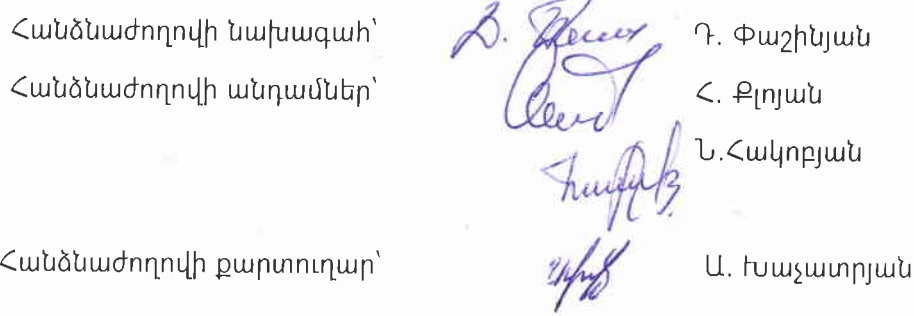 Հանձնաժողովի նախագահ՝ Դ. Փաշինյան
Հանձնաժողովի անդամներ՝ Հ. Քլոյան
Ն.Հակոբյան
Հանձնաժողովի քարտուղար՝ Ա. Խաչատրյան